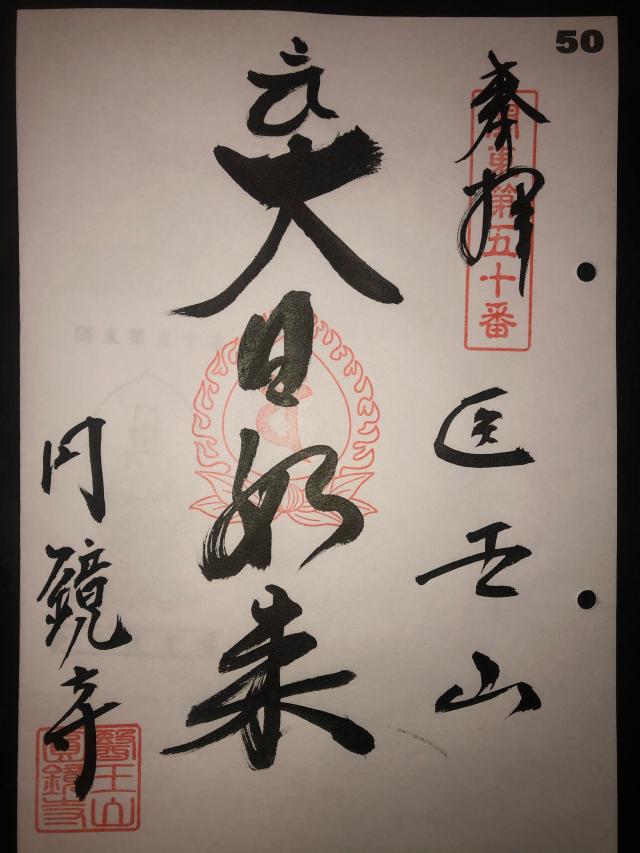 50
奉拝
関東第五十番
医王山
大日如来
円鏡寺
醫王山
圓鏡寺